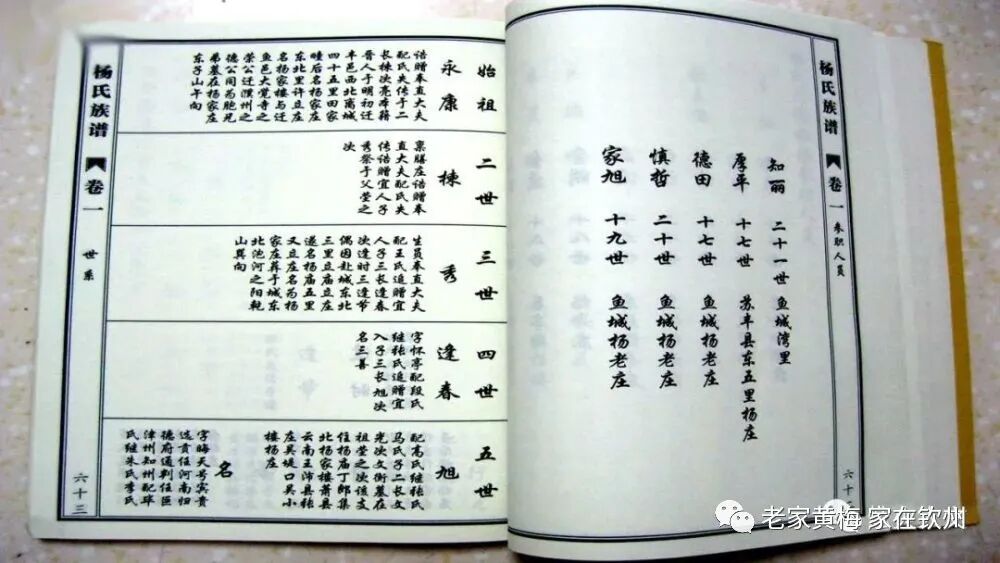 杨氏族谱 卷一 参职人员
知丽 二十一世 鱼城湾里
厚平 十七世 苏丰县东五里杨庄
德田 十七世 鱼城杨老庄
慎哲 二十世 鱼城杨老庄
家旭 十九世 鱼城杨老庄
始祖
永康
诰赠奉直大夫
配氏失传子二
长栋次亮本籍
晋人于明初迁
丰邑西北离城
四十五里田家
疃后名杨家庄
东北里许立庄
名杨家楼与迁
鱼邑大觉寺之
荣公迁濮州之
德公同为胞兄
弟墓在杨家庄
东子山午向
二世
栋
禀膳庄诰赠奉
直大夫配氏失
传诰赠宜人子
秀祭于父茔之
次
三世
秀
生员奉直大夫
配王氏追赠宜
人子三长逢春
次逢时三逢节
偶因赴城东北
三里立庙立庄
遂名杨庙五里
又立庄名为杨
家庄葬于城东
北泡河之阳乾
山巽向
四世
逢春
字怀亭配段氏
继张氏追赠宜
人子三长旭次
名三善
五世
旭
配高氏继张氏
马氏子二长文
光次文衡墓在
祖茔之次该支
住杨庙丁邸集
北杨家楼萧县
云南王沛县张
庄吴堤口吴小
楼杨庄
名
字晦天号宾贵
选贡任河南归
德府通判任
津州知州配毕
氏继朱氏李氏
杨氏族谱 卷一 世系 六十三
老家黄梅 家在钦州